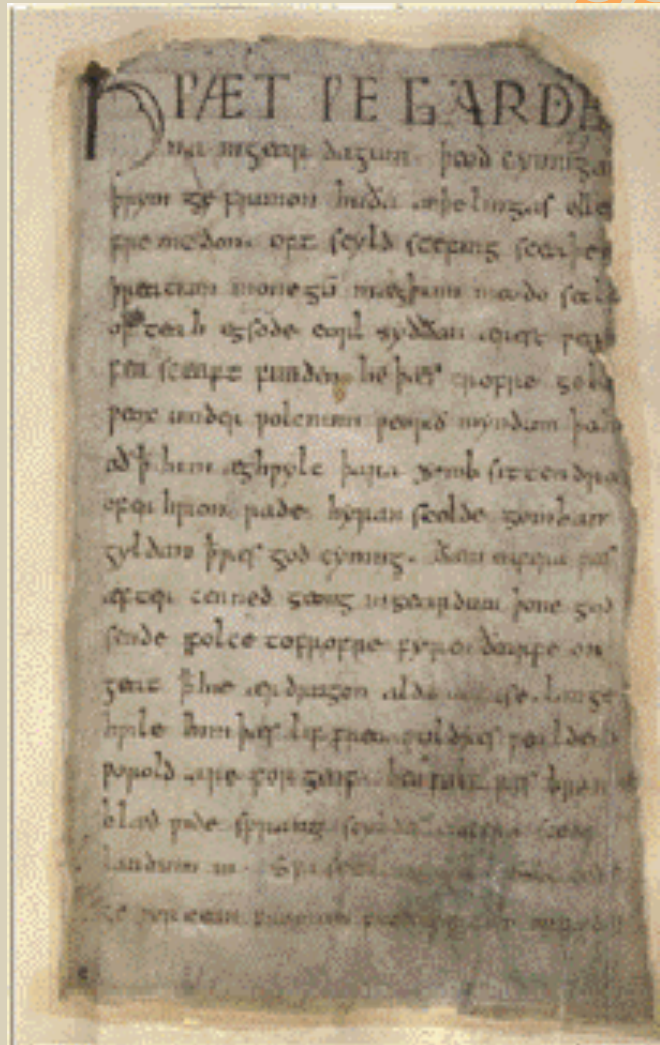 HǷÆT ǷE GARDE
na ingear dagum . þeod cyninga
þrym ge frunon huða æþelingas elle
fre medon . oft scyld scefing sceaþe
þreatum monegū mægþum meodo setl
of teah egsode eorl syððan ærest ƿear
fea sceaft funden he þæs frofre geba
ƿeox under ƿolcnum ƿeorð myndum þah
oð þ̄ him æghƿylc þara ymb sittendra
ofer hron rade hyran scolde gomban
gyldan þ̄ ƿæs god cyning . ðæm eafera ƿæs
æfter cenned geong ingeardum þone god
sende folce tofrofre fyren ðearfe on
geat þ̄ hie ær drugon aldor ase . lange
hƿile him þæs lif frea ƿuldres ƿealdend
ƿorold are for geaf . beoƿulf ƿæs breme
blæd ƿide sprang scyldes eafera scede
landum in . Sƿa
ge ƿyrcean